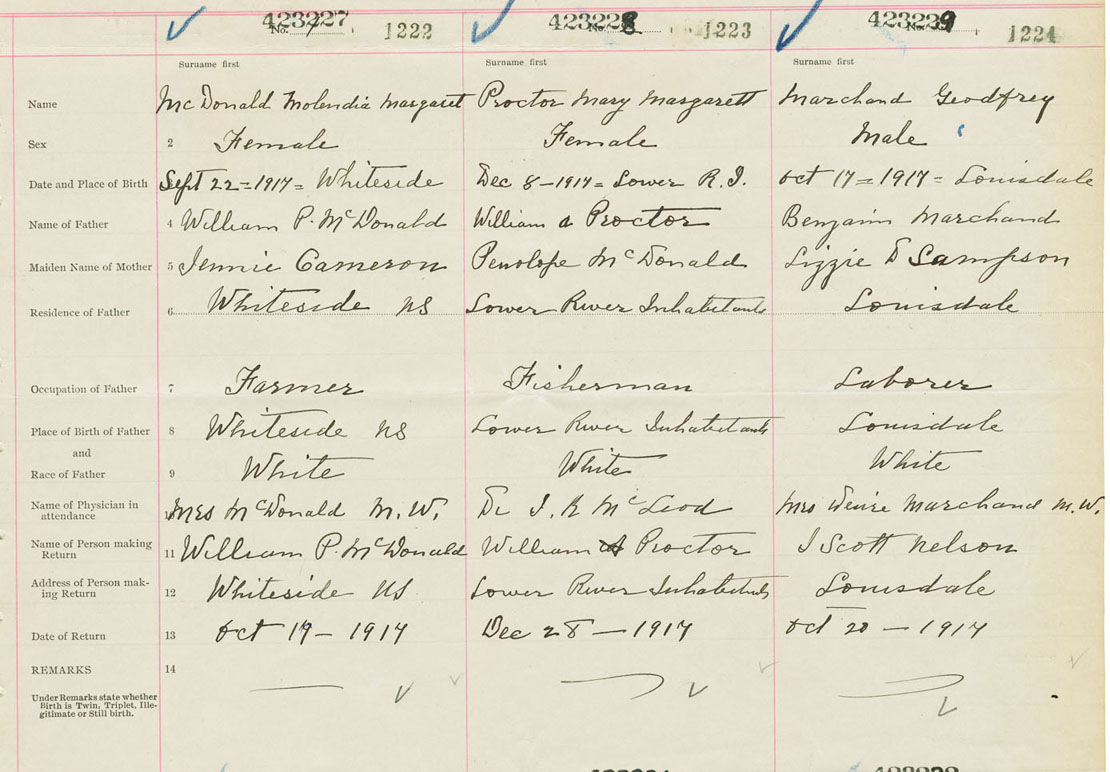 423227 423228 423229
No. 7 1222 No. 8 1223 No. 9 1224
Surname first Surname first Surname first
Name McDonald Molendia Margaret Proctor Mary Margarett Marchand Geodfrey
Sex 2 Female Female Male
Date and Place of Birth Sept 22=1917= Whiteside Dec 8-1917= Lower R.I. Oct 17=1917= Louisdale
Name of Father 4 William P. McDonald William A Proctor Benjamin Marchand
Maiden Name of Mother 5 Jennie Cameron Penolope McDonald Lizzie D Sampson
Residence of Father 6 Whiteside NS Lower River Inhabetants Louisdale
Occupation of Father 7 Farmer Fisherman Laborer
Place of Birth of Father 8 Whiteside NS Lower River Inhabetants Louisdale
and
Race of Father 9 White White White
Name of Physician in Mrs McDonald M.W. Dr I. K McLeod Mrs Marchand M.W.
attendance
Name of Person making 11 William P. McDonald William A Proctor J Scott Nelson
Return
Address of Person mak- 12 Whiteside NS Lower River Inhabetants Louisdale
ing Return
Date of Return 13 Oct 19- 1917 Dec 28 - 1917 Oct 20 - 1917
REMARKS 14
Under Remarks state whether
Birth is Twin, Triplet, Ille-
gitimate or Still birth.